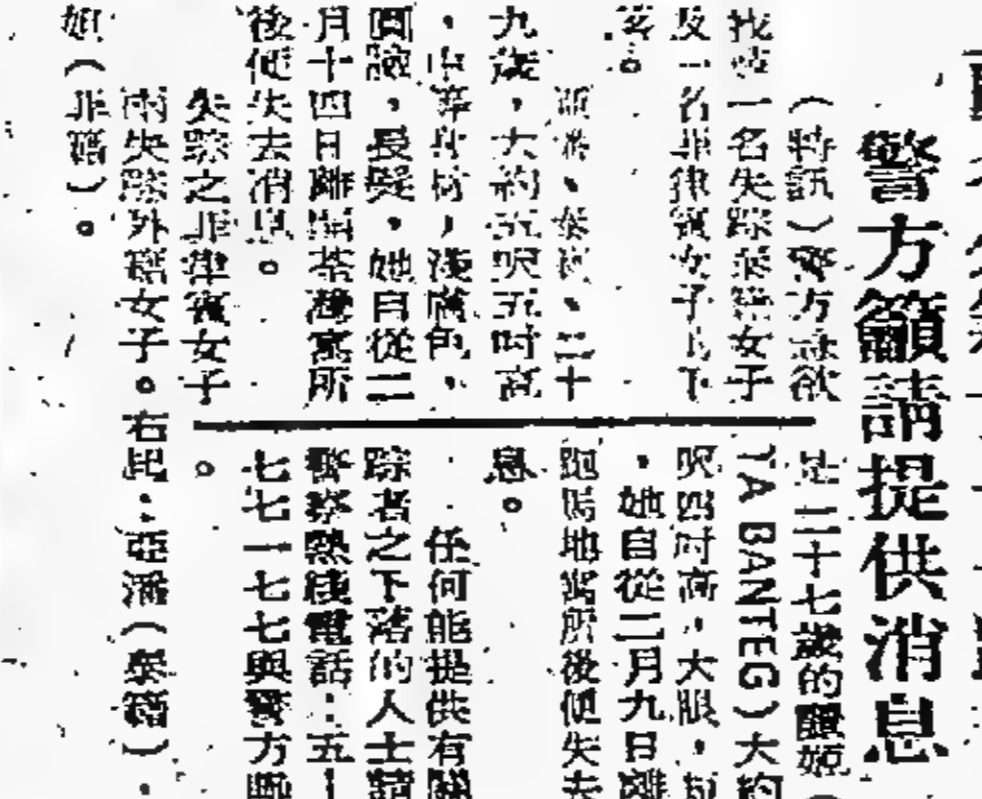 警方籲請提供消息
（特訊）警方亟欲
找尋一名失踪泰籍女子
及一名菲律賓女子之下
落。
亞潘、泰籍、二十
九歲，大約五呎五吋高
，中等身材，淺膚色，
圓臉，長髮，她自從二
月十四日離開荃灣寓所
後便失去消息。
失踪之菲律賓女子
是二十七歲的
TA BANTEG）大約
呎四吋高，大眼，
，她自從二月九日離
跑馬地寓所後便失去
息。
任何能提供有關
踪者之下落的人士請
警察熱綫電話：五—
七七一七七與警方聯
。
兩失踪外籍女子。右起：亞潘（泰籍），
姬（菲籍）。